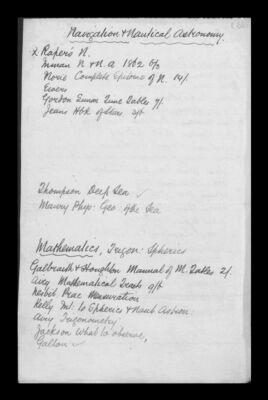 Navigation & Nautical Astronomy
x Rapers N.
Inman N & N. A 1862 6/3
Norie Complete Epitome of N. 14/.
Evers
Gordon Lunar Time Tables 9/.
Jeans HBk of Stars
Thompson Deep Sea ✓
Maury Phys: Geo: of the Sea
Mathematics, Trigon: Spherics
Galbraith & Houghton Manual of M. Tables 2/.
Avey Mathematical
Nesbit Prac Mensuration
Kelly Int: to Spherics & Naut. Astron:
Avey Trigonometry
Jackson What to observe,
Galton ✓